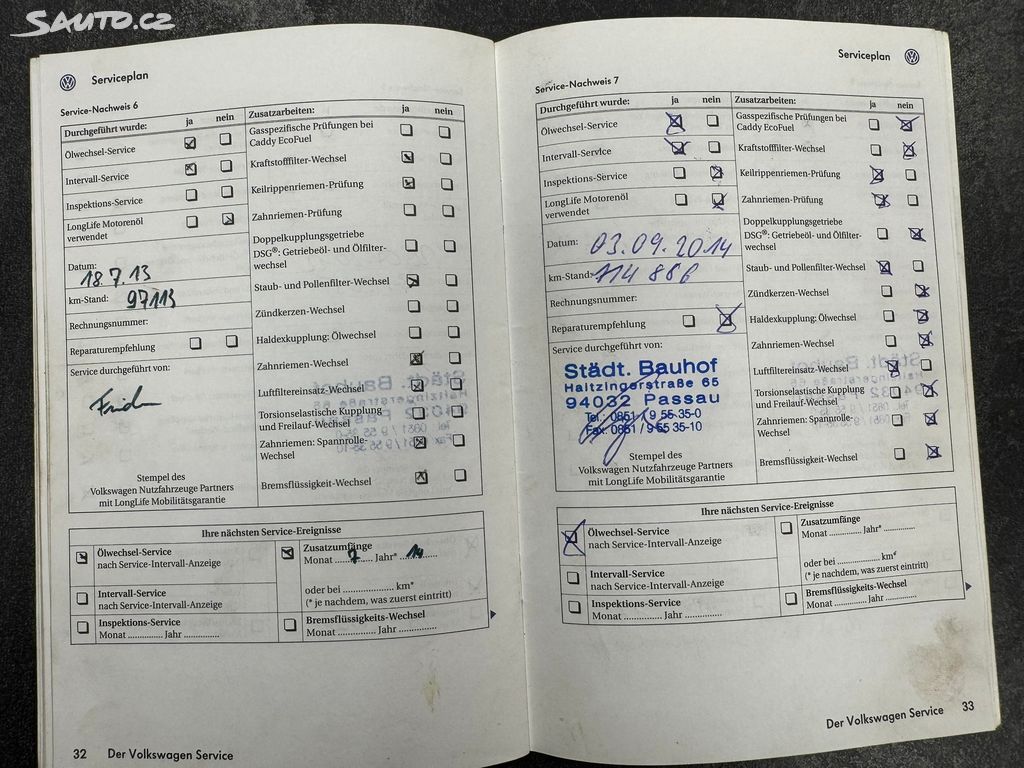 SAUTO.CZ
Serviceplan
Service-Nachweis 6
Durchgeführt wurde: ja nein
Ölwechsel-Service
Intervall-Service
Inspektions-Service
LongLife Motorenöl
verwendet
Datum:
18.7.13
km-Stand: 97113
Rechnungsnummer:
Reparaturempfehlung
Service durchgeführt von:
Stempel des
Volkswagen Nutzfahrzeuge Partners
mit LongLife Mobilitätsgarantie
Zusatzarbeiten: ja nein
Gasspezifische Prüfungen bei
Caddy EcoFuel
Kraftstofffilter-Wechsel
Keilrippenriemen-Prüfung
Zahnriemen-Prüfung
Doppelkupplungsgetriebe
DSG®: Getriebeöl- und Ölfilter-
wechsel
Staub- und Pollenfilter-Wechsel
Zündkerzen-Wechsel
Haldexkupplung: Ölwechsel
Zahnriemen-Wechsel
Luftfiltereinsatz-Wechsel
Torsionselastische Kupplung
und Freilauf-Wechsel
Zahnriemen: Spannrolle-
Wechsel
Bremsflüssigkeit-Wechsel
Ihre nächsten Service-Ereignisse
Ölwechsel-Service
nach Service-Intervall-Anzeige
Intervall-Service
nach Service-Intervall-Anzeige
Inspektions-Service
Monat .............. Jahr ..............
Zusatzumfänge
Monat ...7... Jahr* ...14...
oder bei .............. km*
(* je nachdem, was zuerst eintritt)
Bremsflüssigkeits-Wechsel
Monat .............. Jahr ..............
32 Der Volkswagen Service
Serviceplan
Service-Nachweis 7
Durchgeführt wurde: ja nein
Ölwechsel-Service
Intervall-Service
Inspektions-Service
LongLife Motorenöl
verwendet
Datum: 03.09.2014
km-Stand: 114 886
Rechnungsnummer:
Reparaturempfehlung
Service durchgeführt von:
Städt. Bauhof
Haitzingerstraße 65
94032 Passau
Tel.: 0851 / 9 55 35-0
Fax: 0851 / 9 55 35-10
Stempel des
Volkswagen Nutzfahrzeuge Partners
mit LongLife Mobilitätsgarantie
Zusatzarbeiten: ja nein
Gasspezifische Prüfungen bei
Caddy EcoFuel
Kraftstofffilter-Wechsel
Keilrippenriemen-Prüfung
Zahnriemen-Prüfung
Doppelkupplungsgetriebe
DSG®: Getriebeöl- und Ölfilter-
wechsel
Staub- und Pollenfilter-Wechsel
Zündkerzen-Wechsel
Haldexkupplung: Ölwechsel
Zahnriemen-Wechsel
Luftfiltereinsatz-Wechsel
Torsionselastische Kupplung
und Freilauf-Wechsel
Zahnriemen: Spannrolle-
Wechsel
Bremsflüssigkeit-Wechsel
Ihre nächsten Service-Ereignisse
Ölwechsel-Service
nach Service-Intervall-Anzeige
Intervall-Service
nach Service-Intervall-Anzeige
Inspektions-Service
Monat .............. Jahr ..............
Zusatzumfänge
Monat .............. Jahr* ..............
oder bei .............. km*
(* je nachdem, was zuerst eintritt)
Bremsflüssigkeits-Wechsel
Monat .............. Jahr ..............
Der Volkswagen Service 33